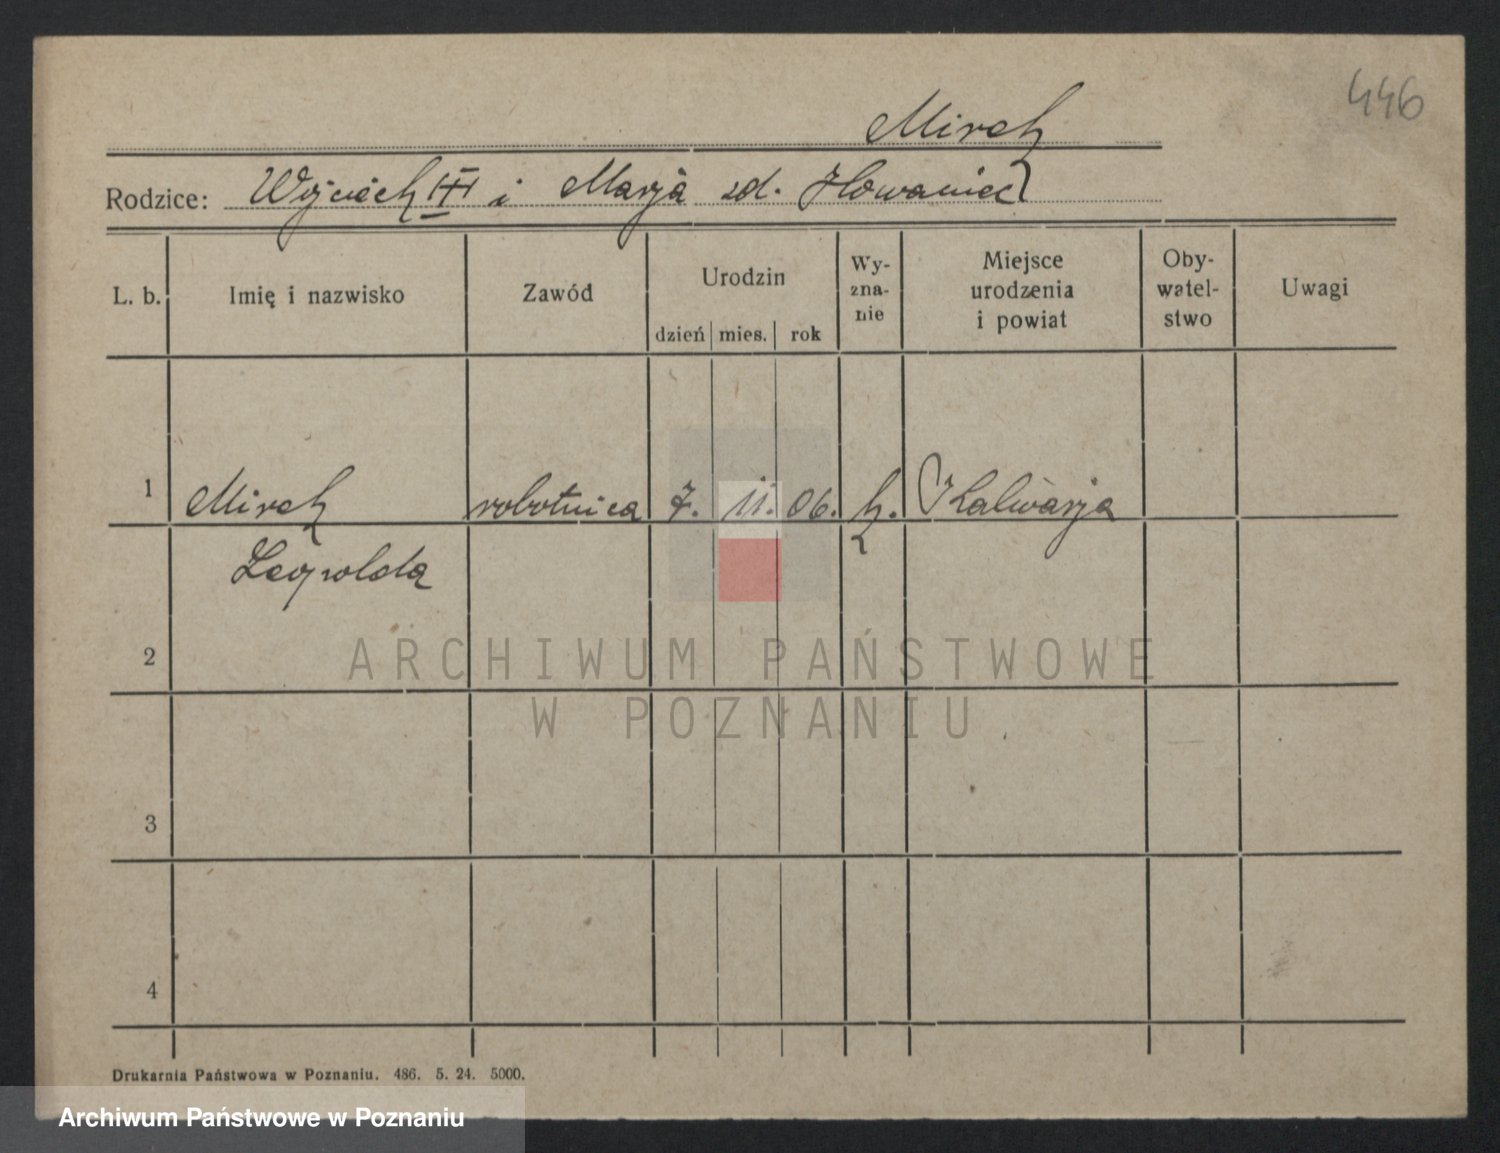 446
Mirek
Rodzice: Wojciech III i Marja zd. Howaniec
L. b. Imię i nazwisko Zawód Urodzin dzień mies. rok Wy-zna-nie Miejsce urodzenia i powiat Oby-watel-stwo Uwagi
1 Mirek robotnica 7. 11. 06. k. Kalwarja
Leopolda
2
ARCHIWUM PAŃSTWOWE
W POZNANIU
3
4
Drukarnia Państwowa w Poznaniu. 486. 5. 24. 5000.
Archiwum Państwowe w Poznaniu